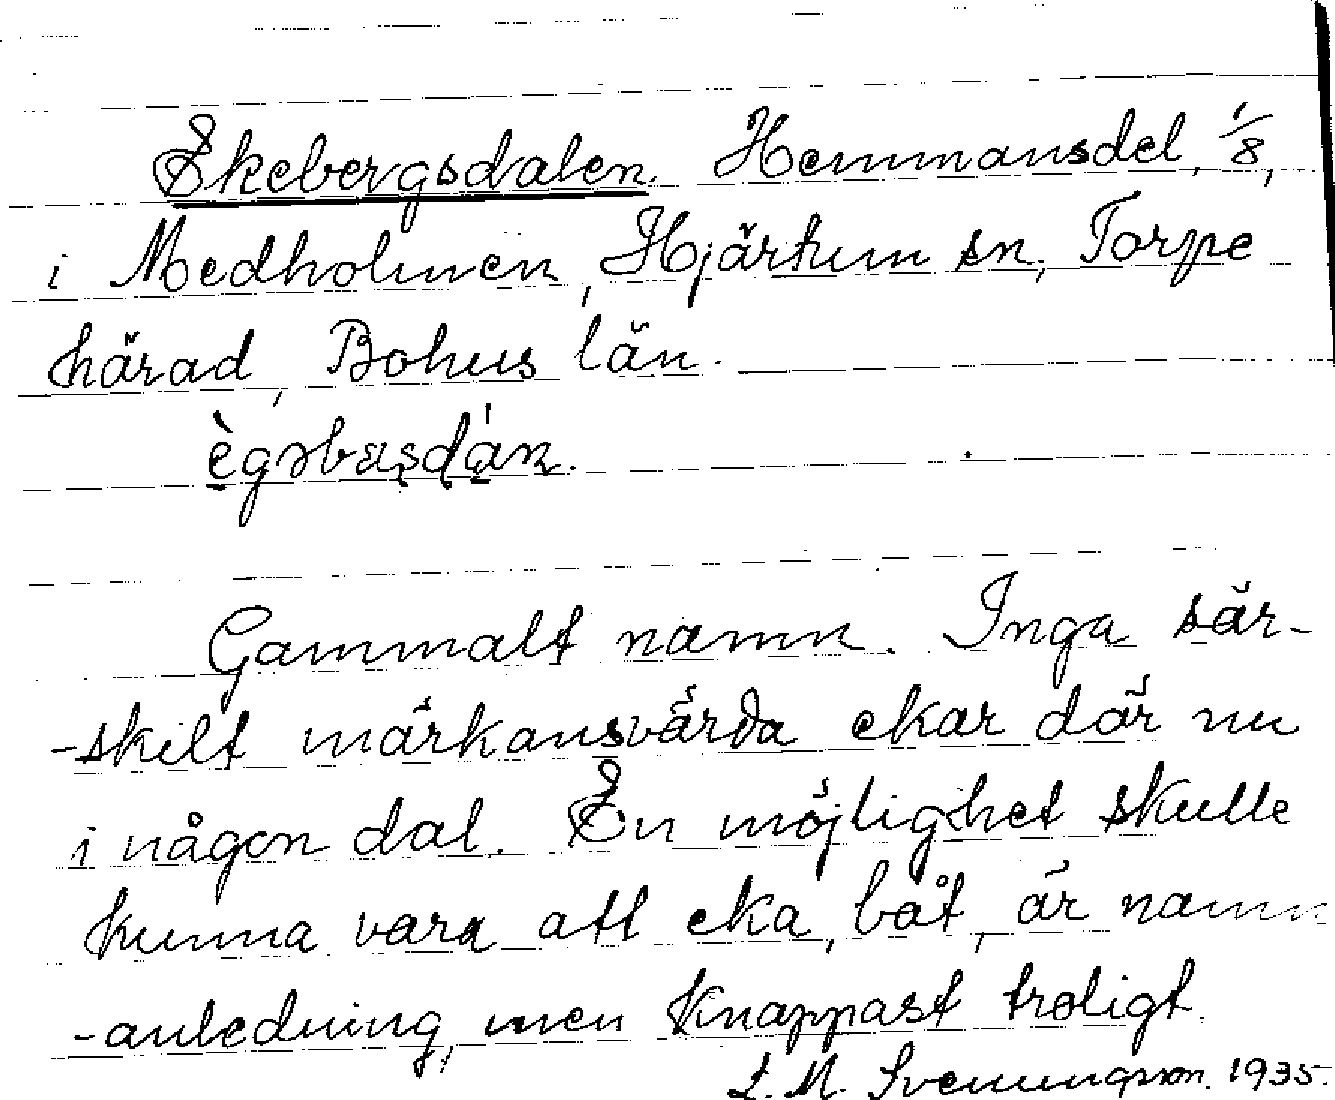 Ekebergsdalen. Hemmansdel, 1/8,
i Medholmen, Hjärtum sn, Torpe
härad, Bohus län.
Gammalt namn. Inga sär-
-skilt märkansvärda ekar där nu
i någon dal. En möjlighet skulle
kunna vara att eka, båt, är namn
-anledning, men knappast troligt.
L. M. Svenungson. 1935.